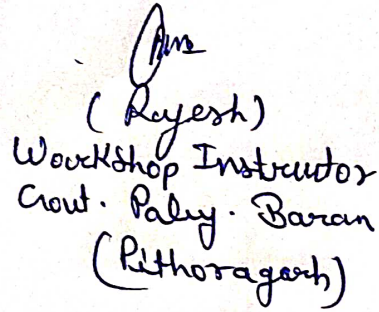 (Rajesh)
Workshop Instructor
Govt. Poly. Baran
(Pithoragarh)